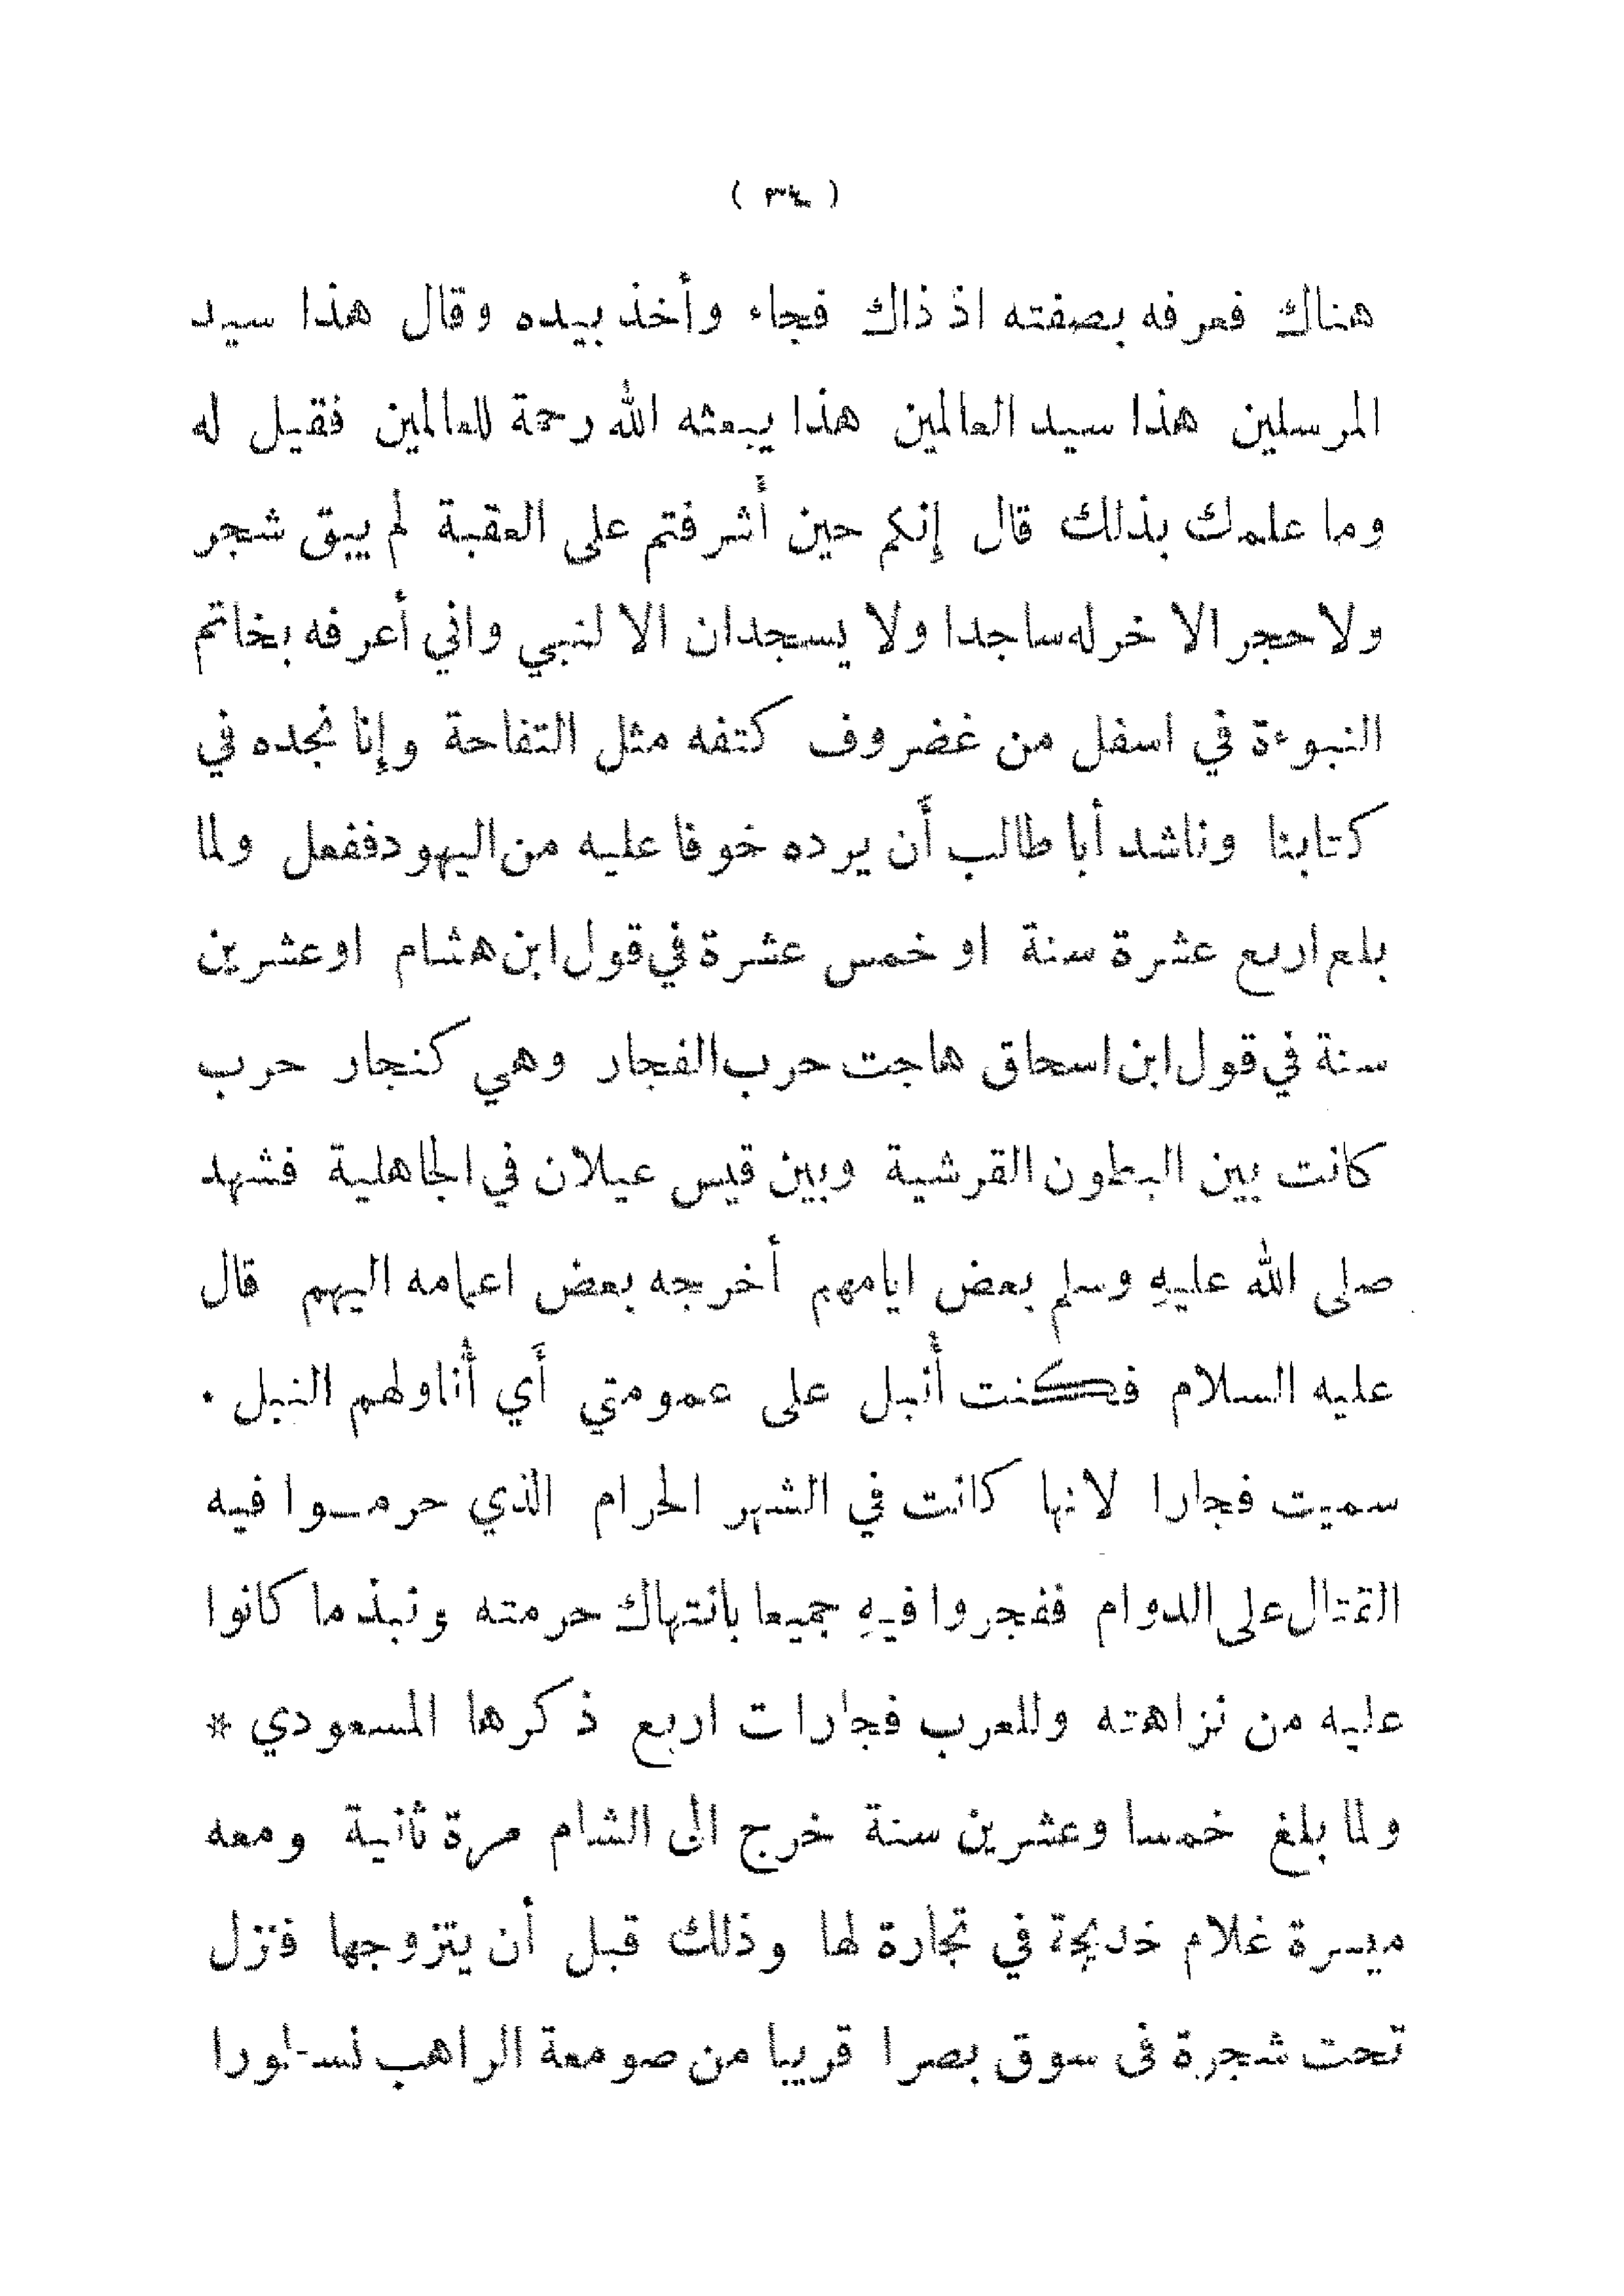 ( ٣٤ )
هناك فعرفه بصفته اذ ذاك فجاء وأخذ بيده وقال هذا سيد
المرسلين هذا سيد العالمين هذا يبعثه الله رحمة للعالمين فقيل له
وما علمك بذلك قال إنكم حين أشرفتم على العقبة لم يبق شجر
ولا حجر الا خر له ساجدا ولا يسجدان الا لنبي واني أعرفه بخاتم
النبوءة في اسفل من غضروف كتفه مثل التفاحة وإنا نجده في
كتابنا وناشد أبا طالب أن يرده خوفا عليه من اليهود ففعل ولما
بلغ اربع عشرة سنة او خمس عشرة في قول ابن هشام او عشرين
سنة في قول ابن اسحاق هاجت حرب الفجار وهي كنجار حرب
كانت بين البطون القرشية وبين قيس عيلان في الجاهلية فشهد
صلى الله عليهِ وسلم بعض ايامهم أخرجه بعض اعمامه اليهم قال
عليه السلام فكنت أنبل على عمومتي أَي أُناولهم النبل .
سميت فجارا لانها كانت في الشهر الحرام الذي حرمـوا فيه
القتال على الدوام ففجروا فيهِ جميعا بانتهاك حرمته ونبذ ما كانوا
عليه من نزاهته وللعرب فجارات اربع ذكرها المسعودي *
ولما بلغ خمسا وعشرين سنة خرج الى الشام مرة ثانية ومعه
ميسرة غلام خديجة في تجارة لها وذلك قبل أن يتزوجها فنزل
تحت شجرة فى سوق بصرا قريبا من صومعة الراهب نسطورا